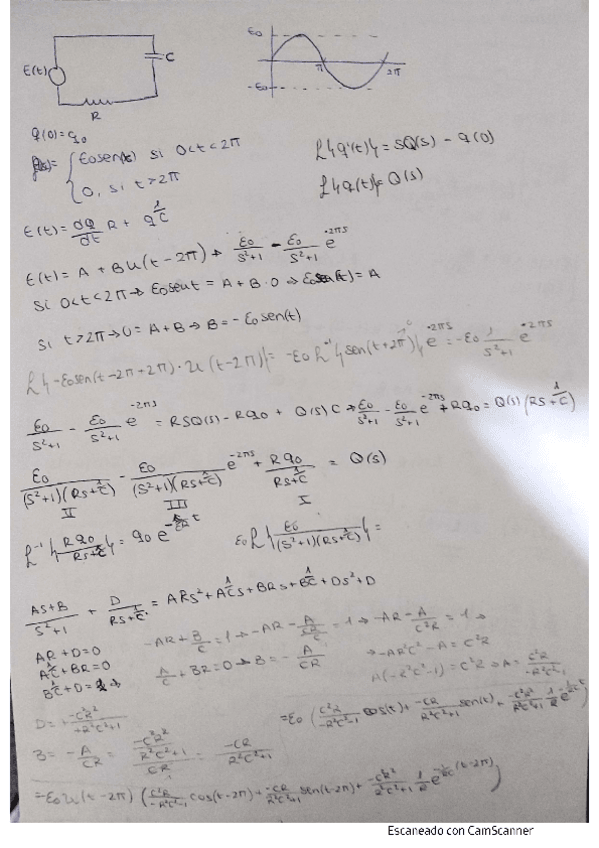 E(t)
C
R
E0
-E0
π
2π
q(0)=q0
E0sen(t) si 0<t<2π
0, si t>2π
L{q'(t)}=SQ(s) - q(0)
L{q(t)}=Q(s)
E(t)= dQ/dt R + q 1/C
E(t)= A + Bu(t-2π) → E0/(s²+1) - E0/(s²+1) e^(-2πs)
Si 0<t<2π → E0sent = A + B·0 → E0sen(t)=A
Si t>2π → 0=A+B → B=-E0sen(t)
L{-E0sen(t-2π+2π)·u(t-2π)}= -E0 L{sen(t+2π)}e^(-2πs) = -E0 1/(s²+1) e^(-2πs)
E0/(s²+1) - E0/(s²+1) e^(-2πs) = RSQ(s) - Rq0 + Q(s)C → E0/(s²+1) - E0/(s²+1) e^(-2πs) + Rq0 = Q(s)(RS+1/C)
E0/((s²+1)(Rs+1/C)) - E0/((s²+1)(Rs+1/C)) e^(-2πs) + Rq0/(Rs+1/C) = Q(s)
II III I
(As+B)/(s²+1) + D/(Rs+1/C) = ARs² + A1/Cs + BRs + B1/C + Ds² + D
AR+D=0
A1/C+BR=0
-AR + B/C = 1 → -AR - A/(C²R) = 1 →
A/C + BR=0 → B = -A/(CR)
→ -AR²C² - A = C²R
A(-R²C²-1) = C²R → A = C²R/(-R²C²-1)
B = -A/(CR) = -CR/(R²C²+1)
=E0 (C²R/(-R²C²-1) cos(t) + -CR/(R²C²+1) sen(t)
=E0u(t-2π) (C²R/(-R²C²-1) cos(t-2π) + -CR/(R²C²+1) sen(t-2π)
Escaneado con CamScanner